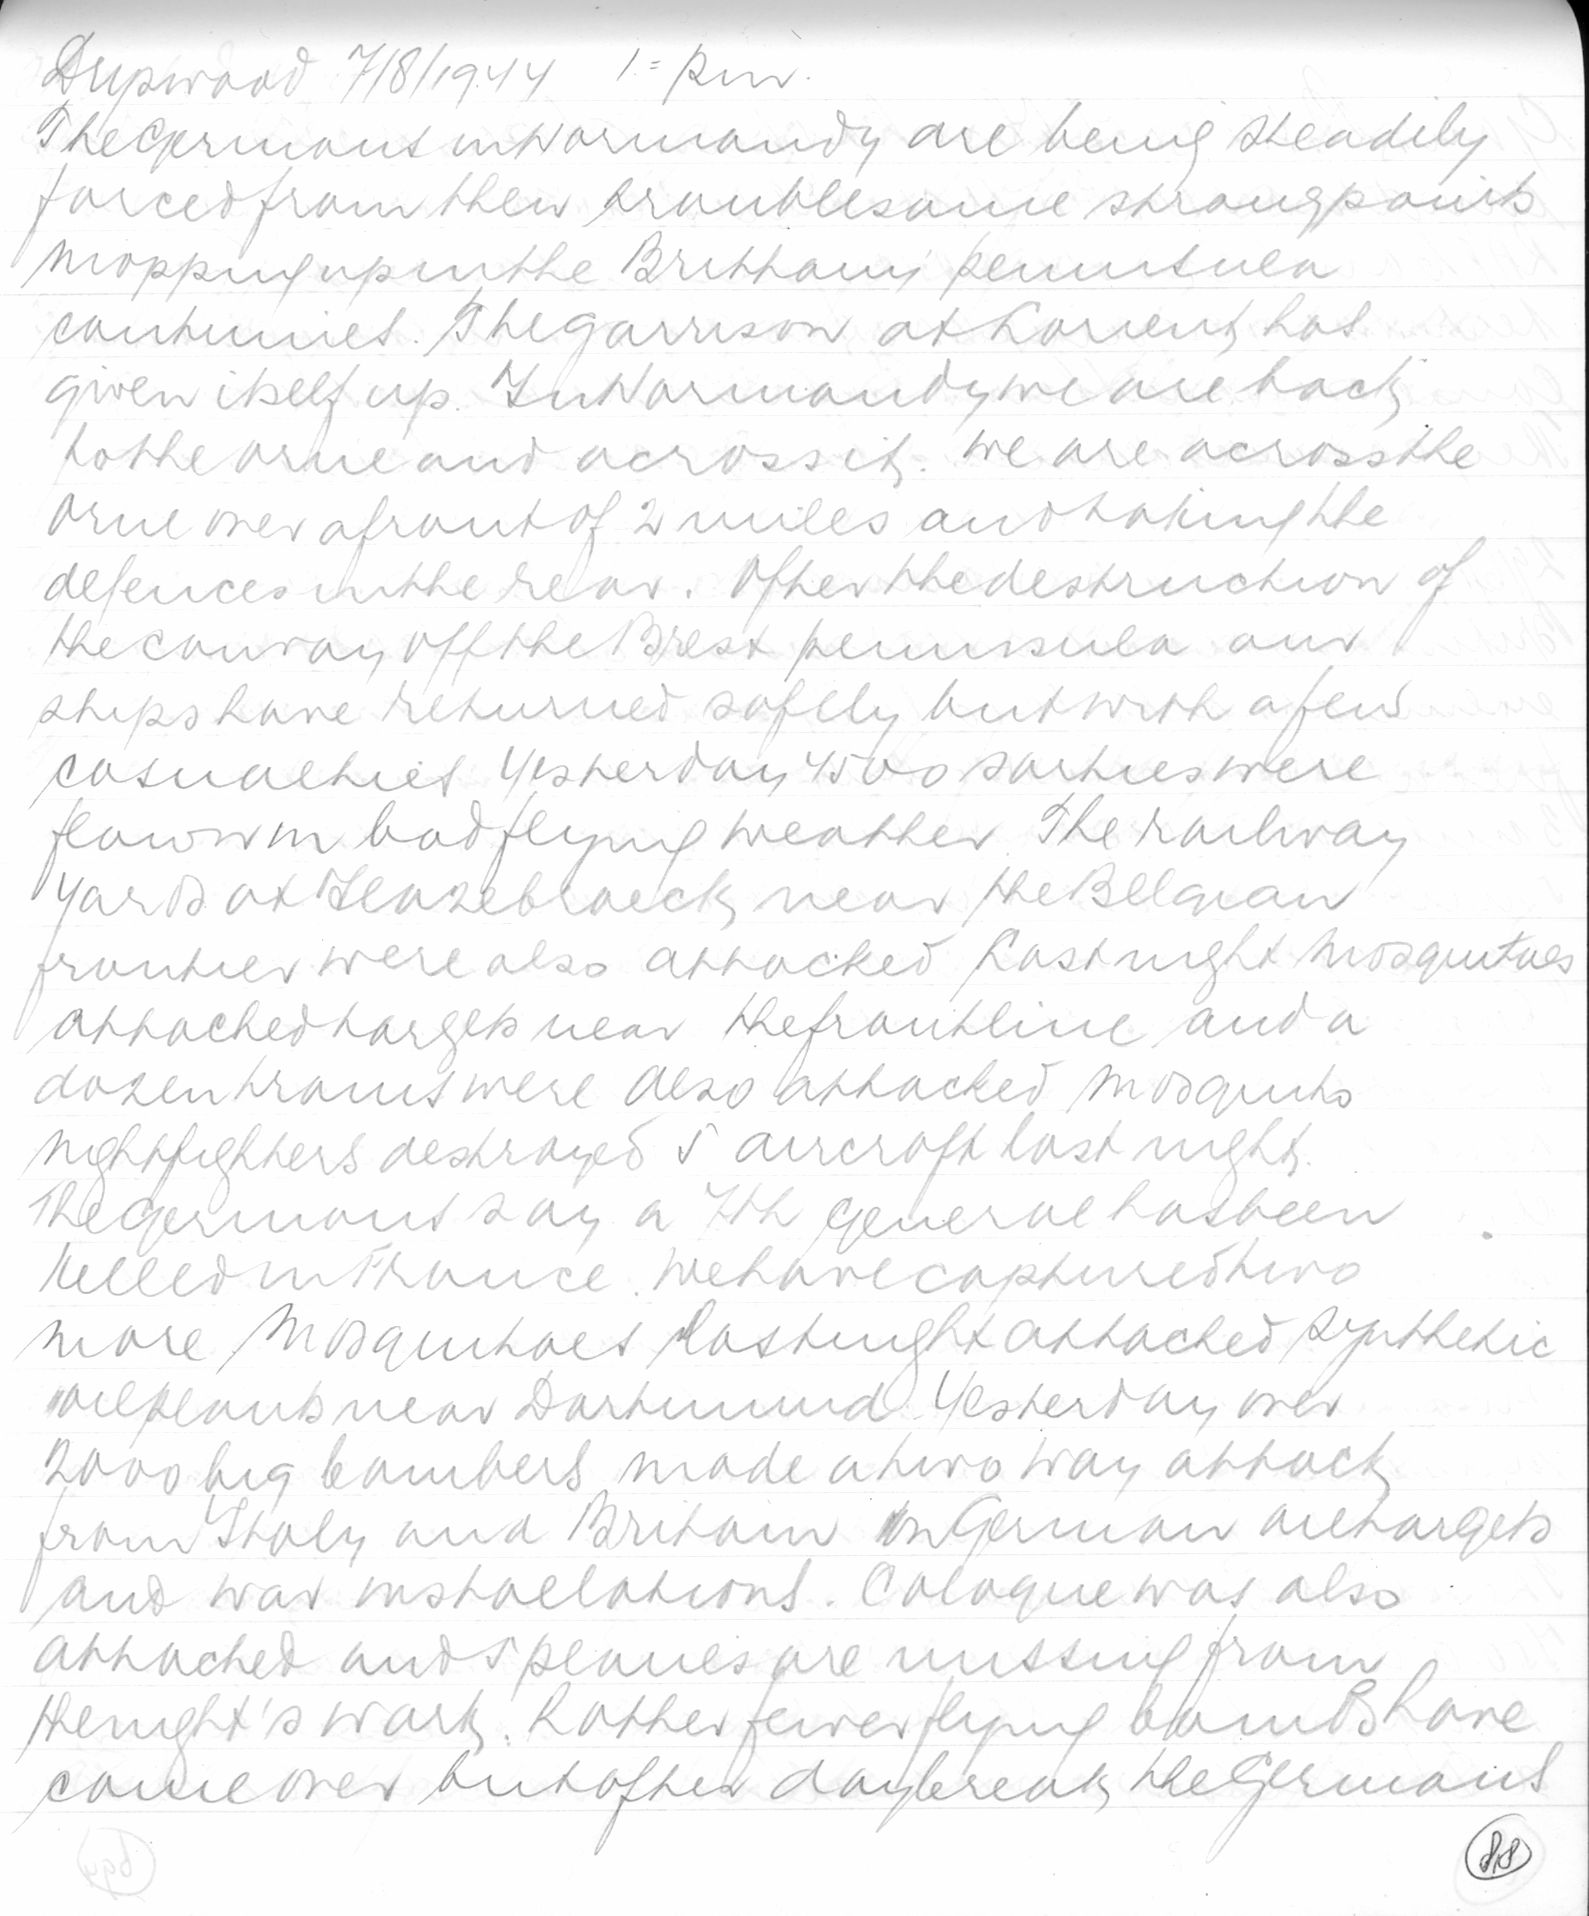 Drypwood 7/8/1944 1.= p.m.
The Germans in Normandy are being steadily
forced from their troublesome strongpoints
Mopping up in the Brittany peninsula
continues. The garrison at Lorient has
given itself up. In Normandy we are back
to the Orne and across it. We are across the
Orne over a front of 2 miles and taking the
defences in the rear. After the destruction of
the convoy off the Brest peninsula our
ships have returned safely but with a few
casualties Yesterday 4500 sorties were
flown in bad flying weather. The railway
yards at Hazebroeck near the Belgian
frontier were also attacked Last night Mosquitoes
attacked targets near the frontline and a
dozen trains were also attacked Mosquito
nightfighters destroyed 5 aircraft last night.
The Germans say a 7th general has been
killed in France. We have captured two
more. Mosquitoes last night attacked synthetic
oilplants near Dortmund. Yesterday over
2000 big bombers made a two way attack
from Italy and Britain on German oiltargets
and war installations. Cologne was also
attacked and 5 planes are missing from
the night's work. Rather fewer flying bombs have
come over but after daybreak the Germans
88